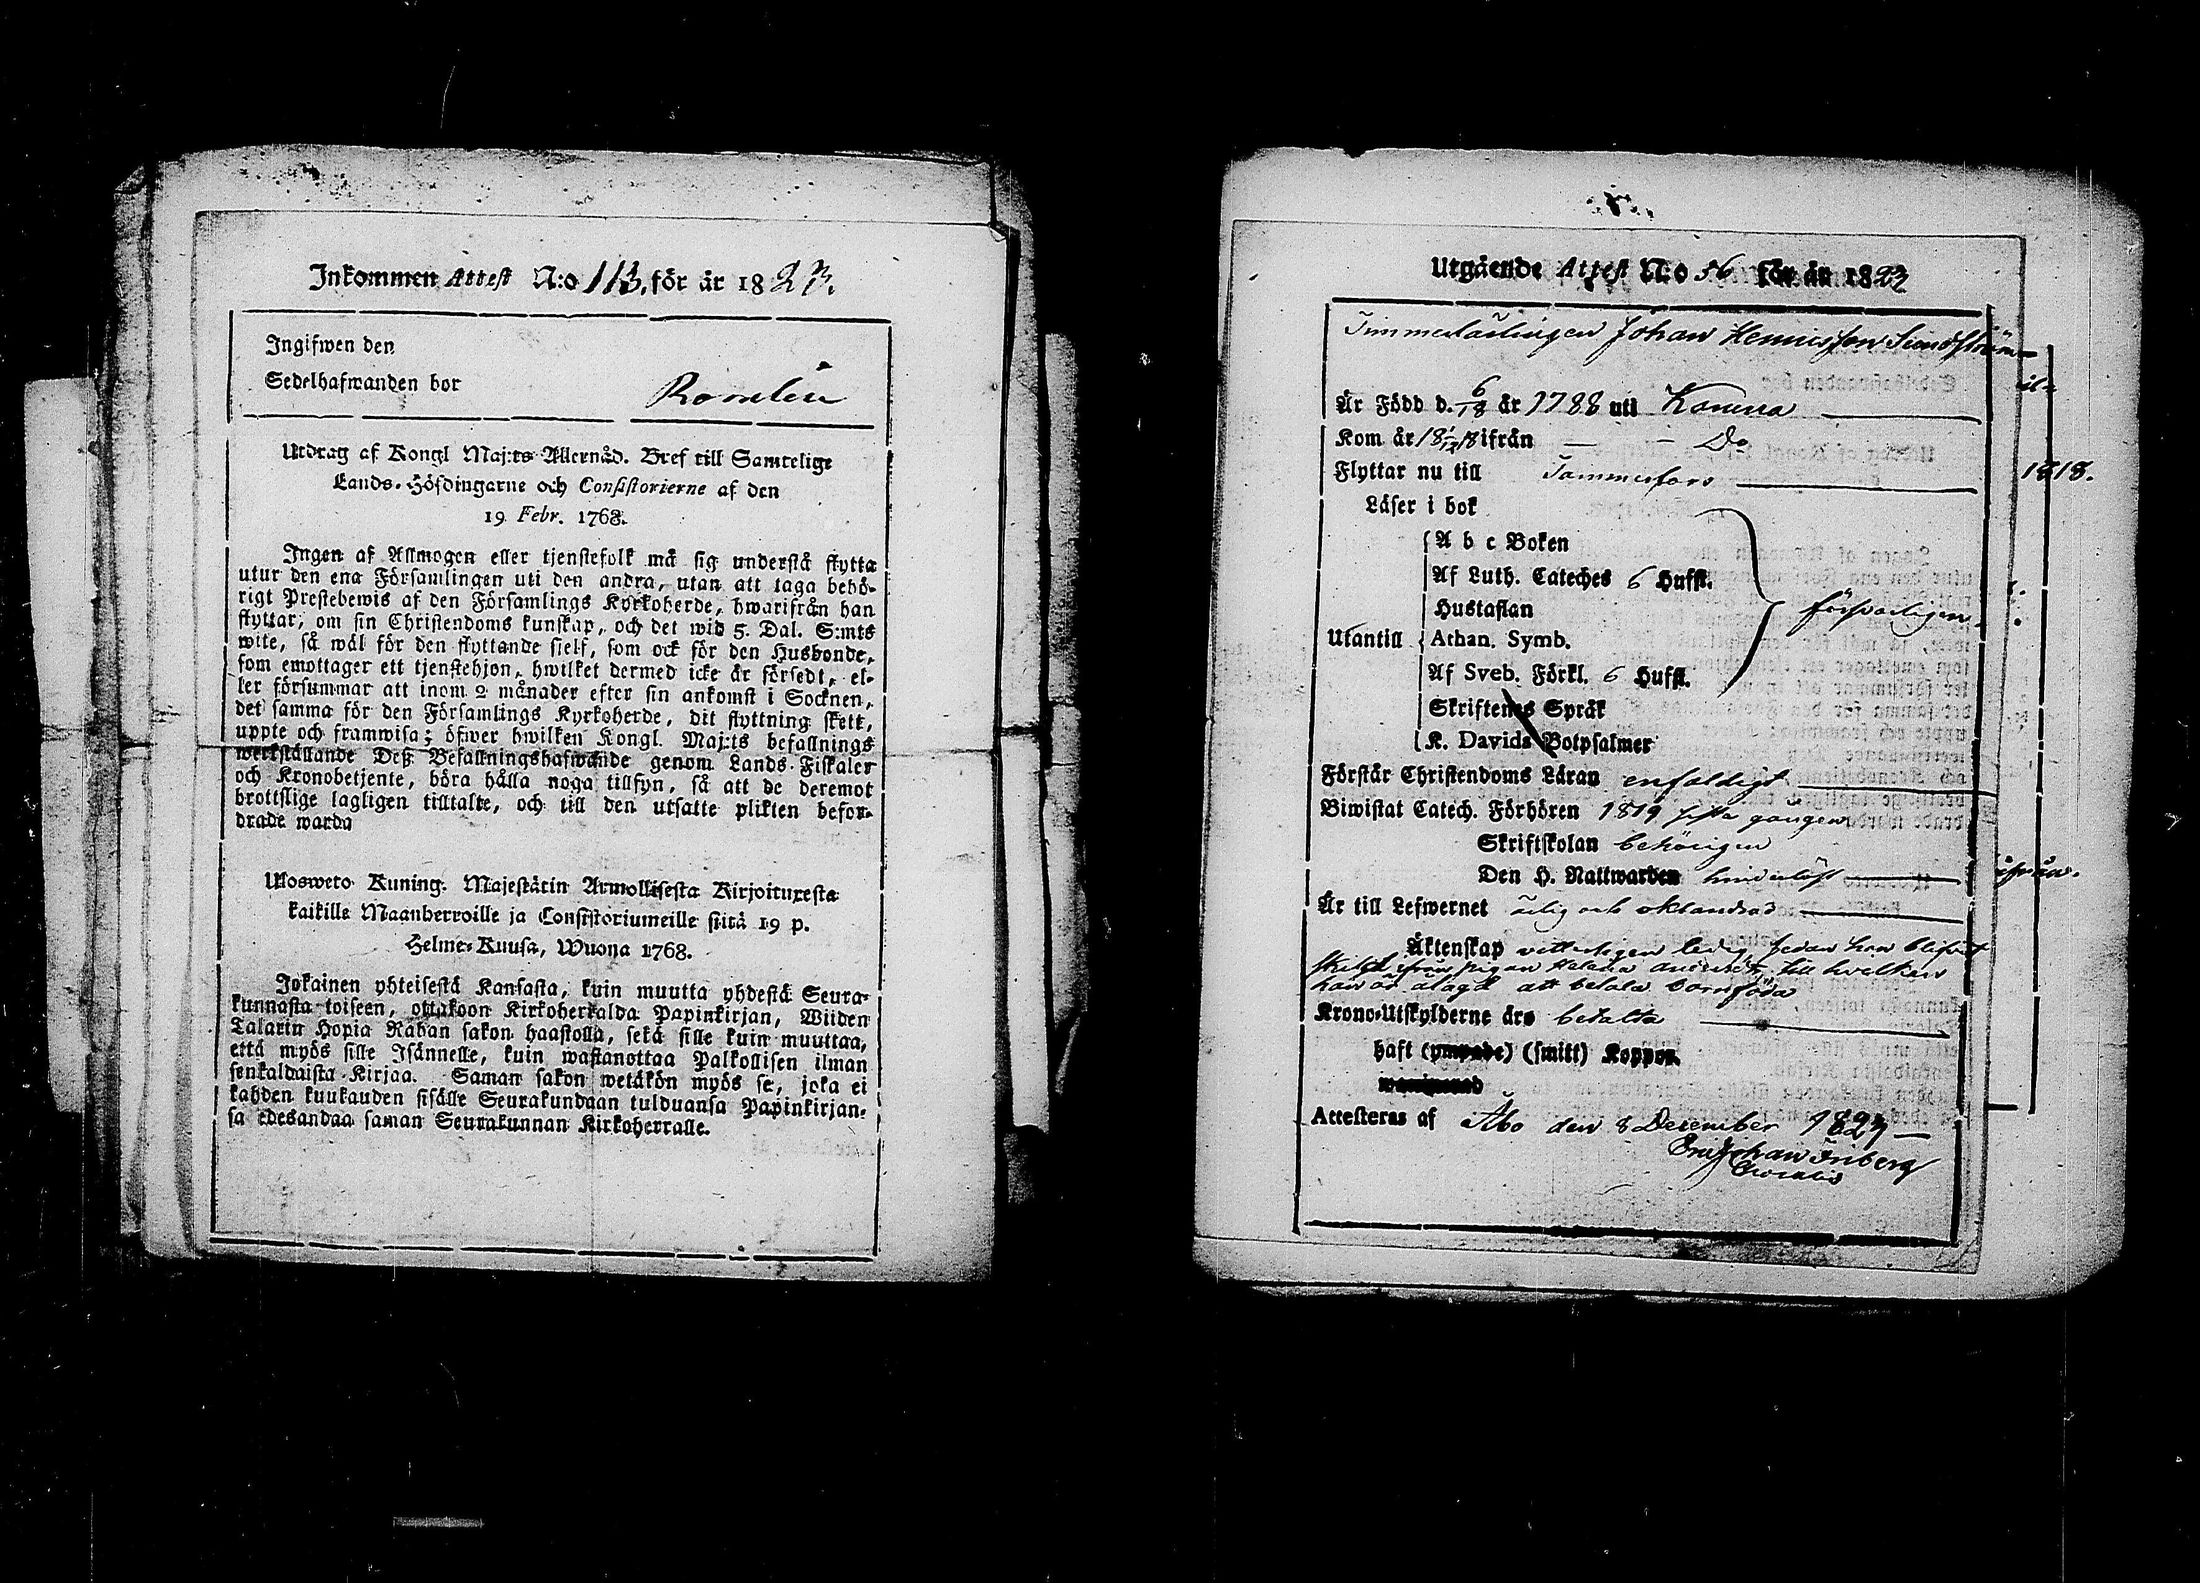 Inkommen Attest N:o 113, för år 1823.
Ingifwen den
Sedelhafwanden bor
Utdrag af Kongl Maj:ts Allernåd. Bref till Samtelige
Lands-Höfdingarne och Consistorierne af den
19 Febr. 1768.
Ingen af Allmogen eller tjenstefolk må sig understå flytta
utur den ena Församlingen uti den andra, utan att taga behö-
rigt Prestebewis af den Församlings Kyrkoherde, hwarifrån han
flyttar, om sin Christendoms kunskap, och det wid 5. Dal. S:mts
wite, så wäl för den flyttande sielf, som ock för den Husbonde,
som emottager ett tjenstehjon, hwilket dermed icke är försedt, el-
ler försummar att inom 2 månader efter sin ankomst i Socknen,
det samma för den Församlings Kyrkoherde, dit flyttning skett,
uppte och framwisa; öfwer hwilken Kongl. Maj:ts befallnings
werkställande Deß Befallningshafwande genom Lands-Fiskaler
och Kronobetjente, böra hålla noga tillsyn, så att de deremot
brottslige lagligen tilltalte, och till den utsatte plikten befor-
drade warda
Ulosweto Kuning. Majestätin Armollisesta Kirjoituxesta
kaikille Maanherroille ja Consistoriumeille siitä 19 p.
Helme-Kuusa, Wuonna 1768.
Jokainen yhteisestä Kansasta, kuin muutta yhdestä Seura-
kunnasta toiseen, ottakoon Kirkoherralda Papinkirjan, Wiiden
Talarin Hopia Rahan sakon haastolla, sekä sille kuin muuttaa,
että myös sille Isännelle, kuin wastanottaa Palkollisen ilman
senkaldaista Kirjaa. Saman sakon wetäkön myös se, joka ei
kahden kuukauden sisälle Seurakundaan tulduansa Papinkirjan-
sa edesandaa saman Seurakunnan Kirkoherralle.
Utgående Attest N:o 56 för år 1823
Timmerkarlingen Johan Henricsson Sundström
Är Född d. 6/18 år 1788 uti Karuna
Kom år 18 18 ifrån Do
Flyttar nu till Tammerfors
1818.
Läser i bok
A b c Boken
Af Luth. Cateches 6 Huffst.
Hustaflan
försvarligen.
Utantill Athan. Symb.
Af Sveb. Förkl. 6 Huffst.
Skriftenes Språk
K. Davids Botpsalmer
Förstår Christendoms Läran enfaldigt
Biwistat Catech. Förhören 1819 sista gången
Skriftskolan behörigen
Den H. Nattwarden hinderlöst
Är till Lefwernet ärlig och oklandrad
Äktenskap vetterligen ledig, sedan han blifvit
skild från pigan Helena till hvilken
han är ålagd att betala barnföda
Krono-Utskylderne äro betalta
haft (smitt) Koppor.
Attesteras af Åbo den 8 December 1823
Johan Friberg